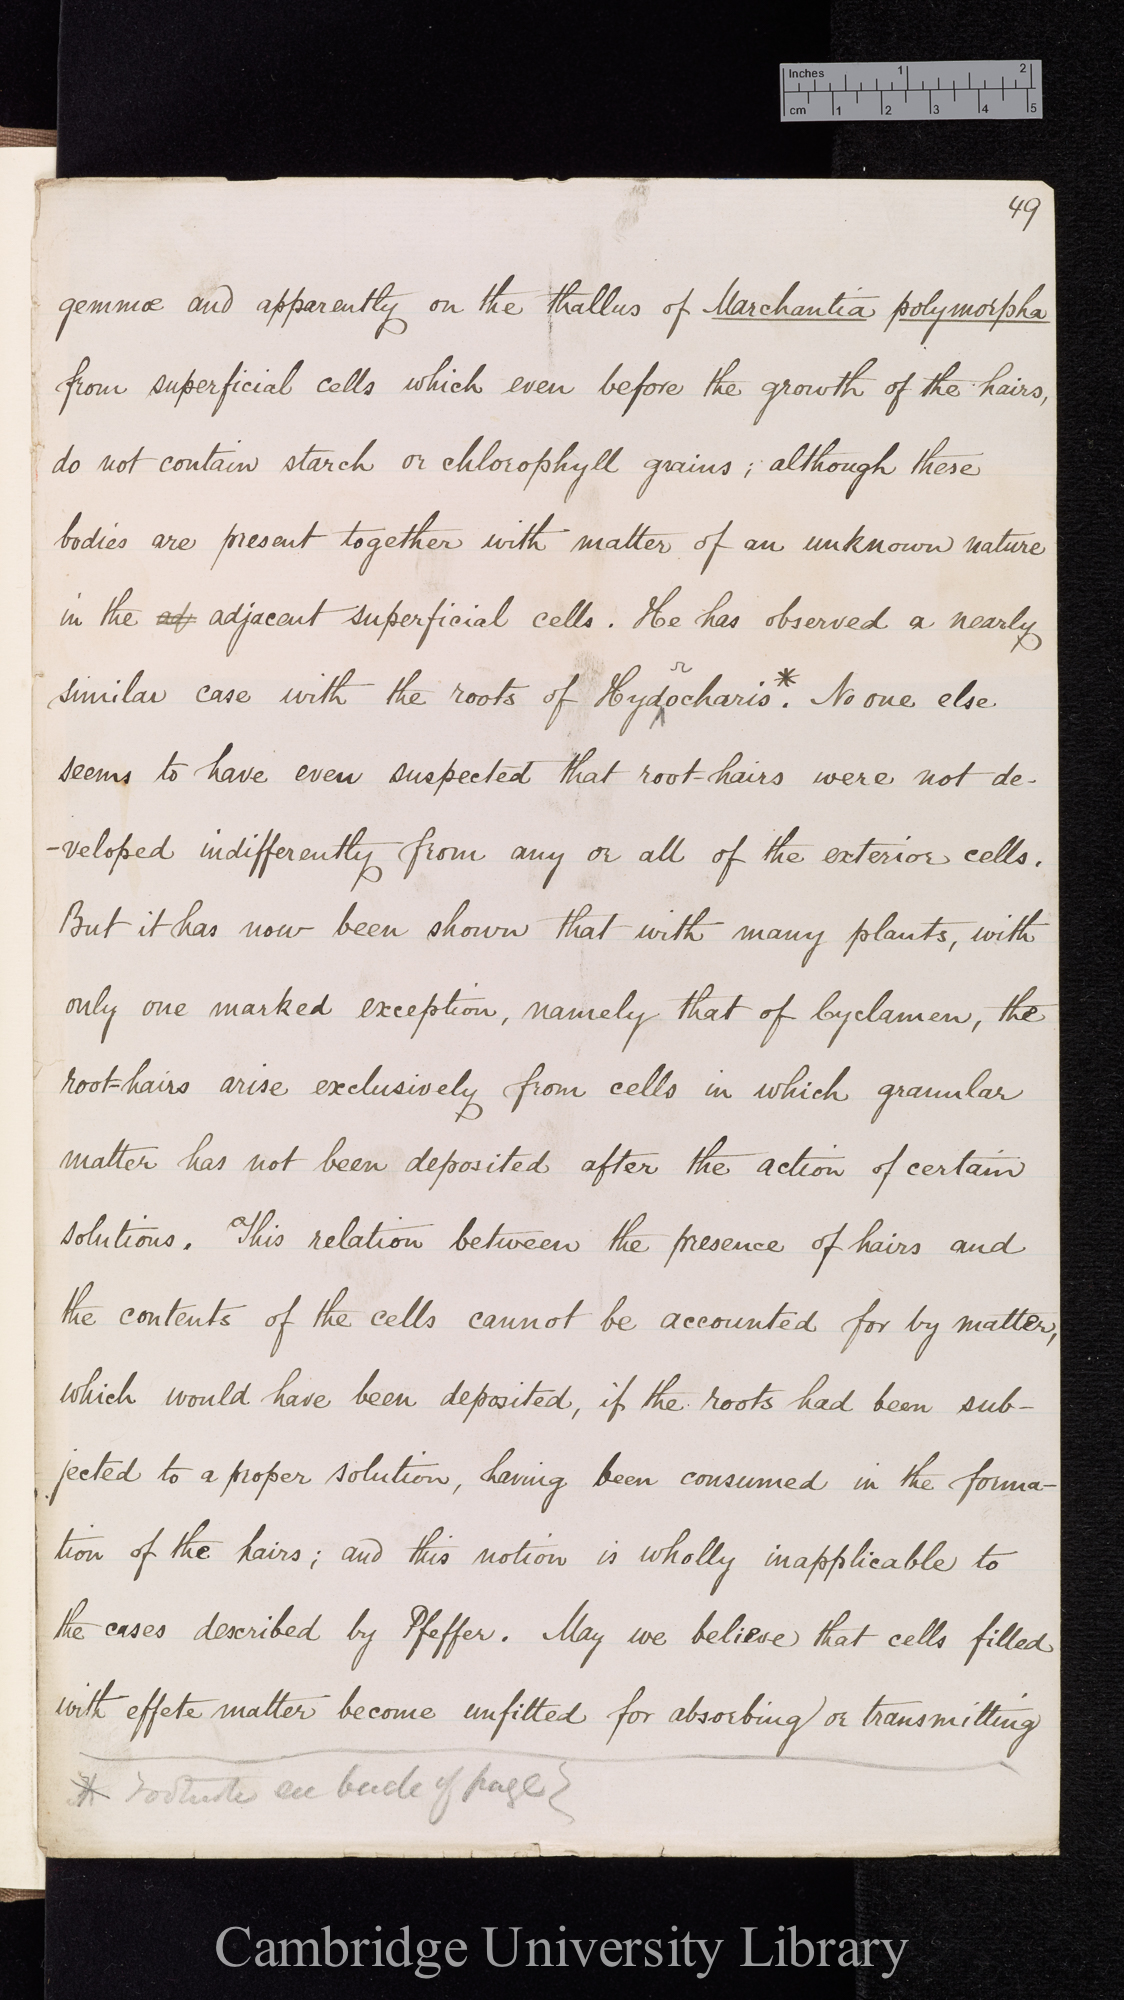 Inches 1 2
cm 1 2 3 4 5
49
gemmæ and apparently on the thallus of Marchantia polymorpha
from superficial cells which even before the growth of the hairs,
do not contain starch or chlorophyll grains; although these
bodies are present together with matter of an unknown nature
in the ad adjacent superficial cells. He has observed a nearly
similar case with the roots of Hydrocharis*. No one else
seems to have even suspected that root-hairs were not de-
-veloped indifferently from any or all of the exterior cells.
But it has now been shown that with many plants, with
only one marked exception, namely that of Cyclamen, the
root-hairs arise exclusively from cells in which granular
matter has not been deposited after the action of certain
solutions. This relation between the presence of hairs and
the contents of the cells cannot be accounted for by matter,
which would have been deposited, if the roots had been sub-
jected to a proper solution, having been consumed in the forma-
tion of the hairs; and this notion is wholly inapplicable to
the cases described by Pfeffer. May we believe that cells filled
with effete matter become unfitted for absorbing or transmitting
* Footnote on back of page}
Cambridge University Library